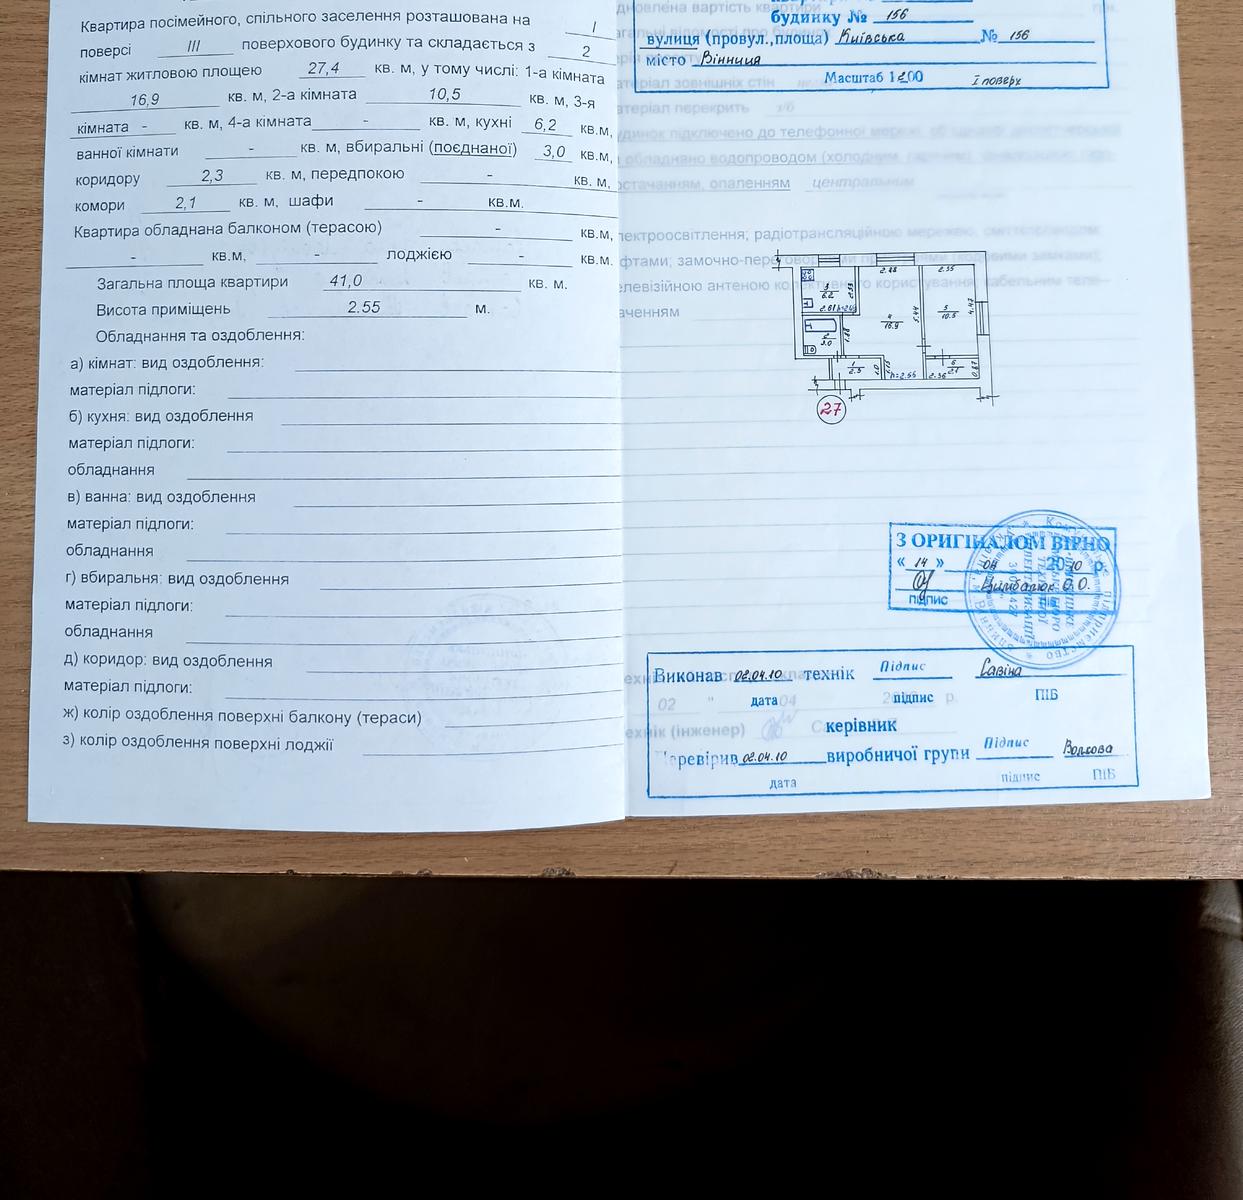 Квартира посімейного, спільного заселення розташована на I
поверсі III поверхового будинку та складається з 2
кімнат житловою площею 27,4 кв. м, у тому числі: 1-а кімната
16,9 кв. м, 2-а кімната 10,5 кв. м, 3-я
кімната - кв. м, 4-а кімната - кв. м, кухні 6,2 кв.м,
ванної кімнати - кв. м, вбиральні (поєднаної) 3,0 кв.м,
коридору 2,3 кв. м, передпокою - кв. м,
комори 2,1 кв. м, шафи - кв.м.
Квартира обладнана балконом (терасою) - кв.м,
- кв.м, - лоджією - кв.м.
Загальна площа квартири 41,0 кв. м.
Висота приміщень 2.55 м.
Обладнання та оздоблення:
а) кімнат: вид оздоблення:
матеріал підлоги:
б) кухня: вид оздоблення
матеріал підлоги:
обладнання
в) ванна: вид оздоблення
матеріал підлоги:
обладнання
г) вбиральня: вид оздоблення
матеріал підлоги:
обладнання
д) коридор: вид оздоблення
матеріал підлоги:
ж) колір оздоблення поверхні балкону (тераси)
з) колір оздоблення поверхні лоджії
будинку № 156
вулиця (провул.,площа) Київська № 156
місто Вінниця
Масштаб 1:200 I поверх
2.88 2.35
3
6.2
2.53
4
16.9
5.44
5
10.5
4.47
2
3.0
1.88
1
2.3
1.0
1.15
h=2.55
2.36
6
2.1
0.87
27
З ОРИГІНАЛОМ ВІРНО
« 14 » 04 2010 р.
Цимбалюк О.О.
підпис
Виконав 02.04.10 технік Підпис Савіна
дата підпис ПІБ
керівник
Перевірив 02.04.10 виробничої групи Підпис Волкова
дата підпис ПІБ